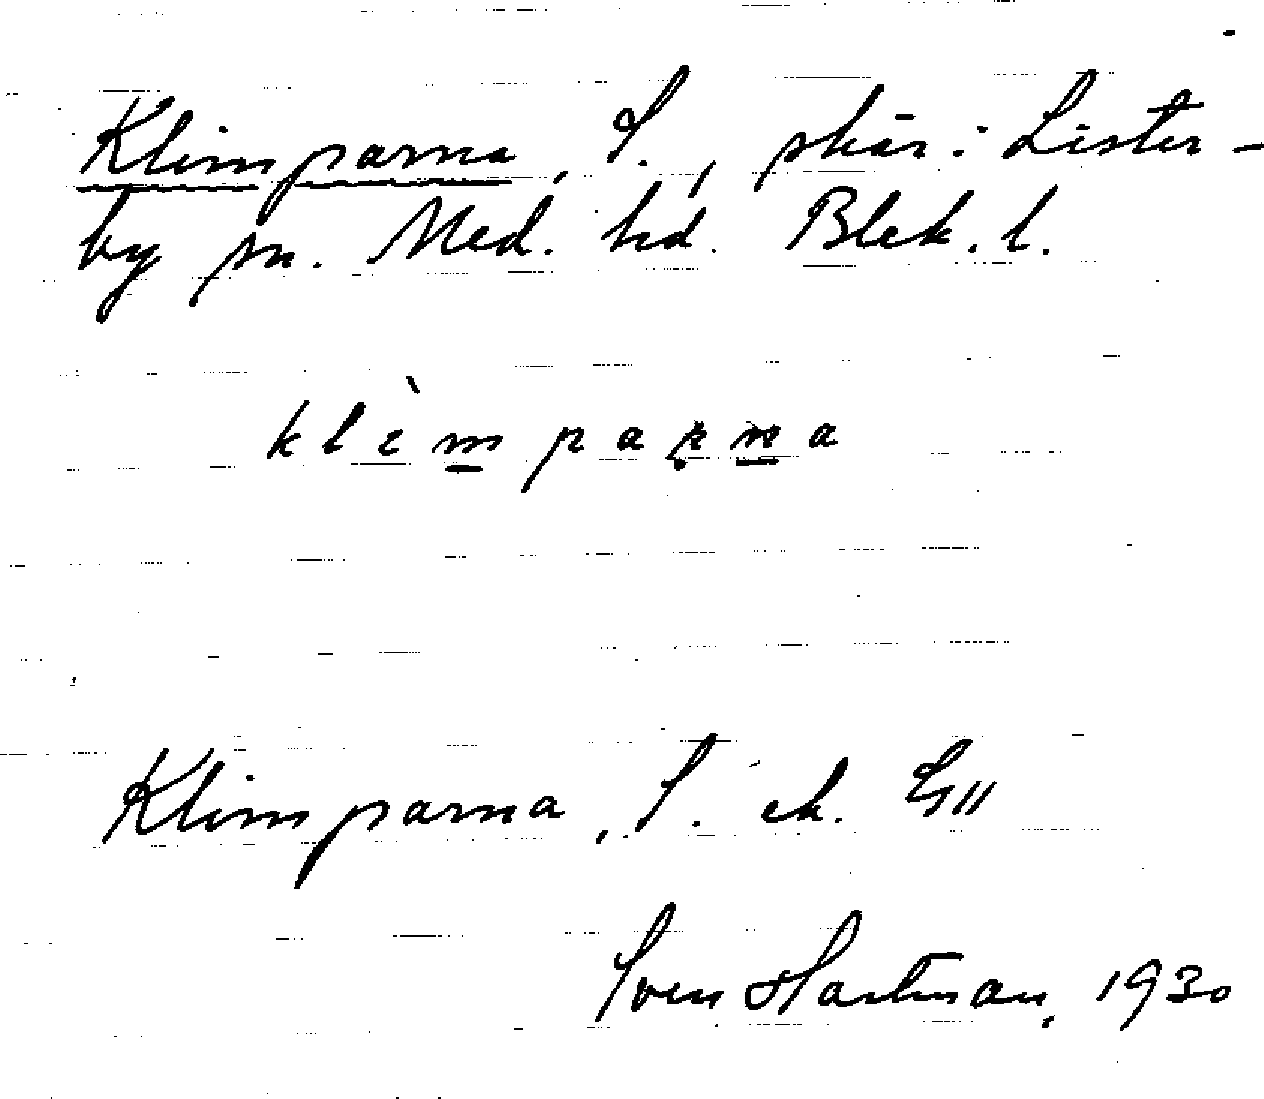 Klimparna, S., skär i Lister-
by sn. Med. hd. Blek. l.
klìmparna
Klimparna, S. ek.
Sven Hartman, 1930